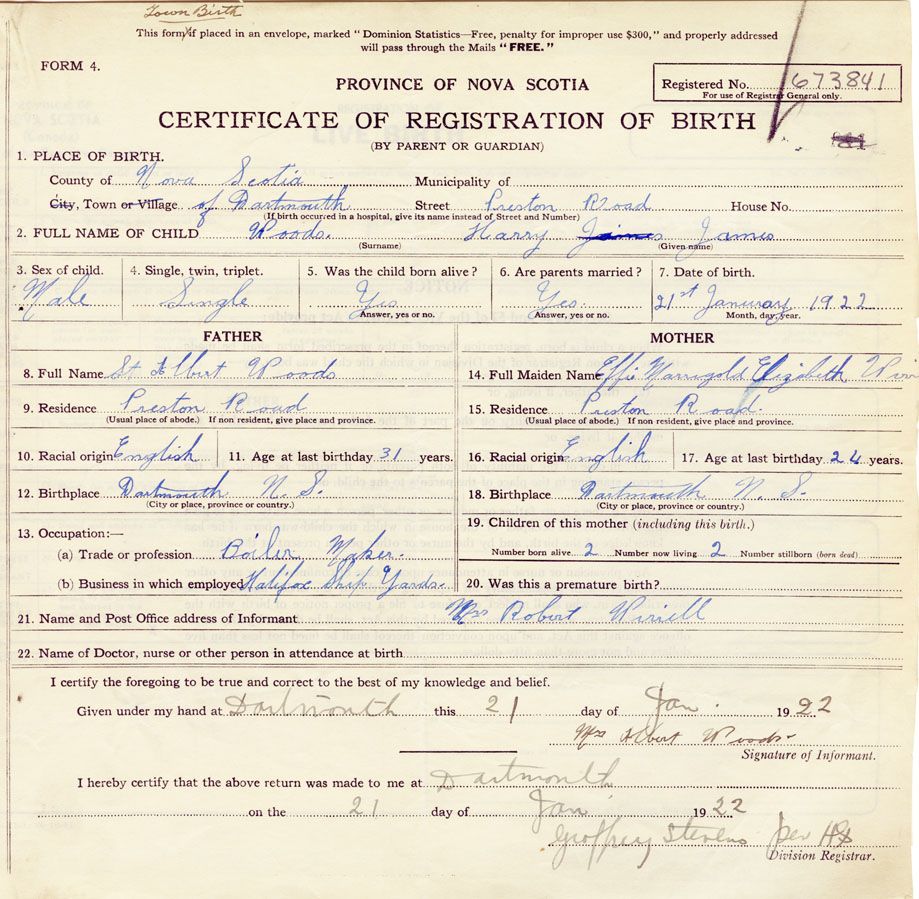 Town Birth
This form if placed in an envelope, marked "Dominion Statistics—Free, penalty for improper use $300," and properly addressed
will pass through the Mails "FREE."
FORM 4.
PROVINCE OF NOVA SCOTIA
Registered No. 673841
For use of Registrar General only.
CERTIFICATE OF REGISTRATION OF BIRTH
(BY PARENT OR GUARDIAN)
1. PLACE OF BIRTH.
County of Nova Scotia Municipality of
City, Town or Village of Dartmouth Street Preston Road House No.
(If birth occurred in a hospital, give its name instead of Street and Number)
2. FULL NAME OF CHILD Woods. Harry James James
(Surname) (Given name)
3. Sex of child. 4. Single, twin, triplet. 5. Was the child born alive? 6. Are parents married? 7. Date of birth.
Male Single Yes Yes. 21st January 1922
Answer, yes or no. Answer, yes or no. Month, day, year.
FATHER MOTHER
8. Full Name St Albert Woods 14. Full Maiden Name Effie Marrigold Elizabeth
9. Residence Preston Road 15. Residence Preston Road.
(Usual place of abode.) If non resident, give place and province. (Usual place of abode.) If non resident, give place and province.
10. Racial origin English 11. Age at last birthday 31 years. 16. Racial origin English 17. Age at last birthday 24 years.
12. Birthplace Dartmouth N. S. 18. Birthplace Dartmouth N. S.
(City or place, province or country.) (City or place, province or country.)
13. Occupation:— 19. Children of this mother (including this birth.)
(a) Trade or profession Boiler Maker. Number born alive 2 Number now living 2 Number stillborn (born dead)
(b) Business in which employed Halifax Ship Yards. 20. Was this a premature birth?
21. Name and Post Office address of Informant Mrs Robert
22. Name of Doctor, nurse or other person in attendance at birth
I certify the foregoing to be true and correct to the best of my knowledge and belief.
Given under my hand at Dartmouth this 21 day of Jan. 1922
Mrs Albert Woods
Signature of Informant.
I hereby certify that the above return was made to me at Dartmouth
on the 21 day of Jan 1922
Geoffrey Stevens per
Division Registrar.